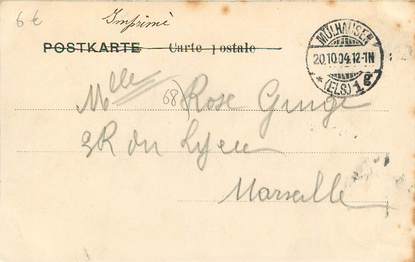 6 €
Imprimé
POSTKARTE Carte postale
MÜLHAUSEN
20.10.04.12-1N
* (ELS) 1g
Mlle Rose
68
2R du Lycée
Marseille